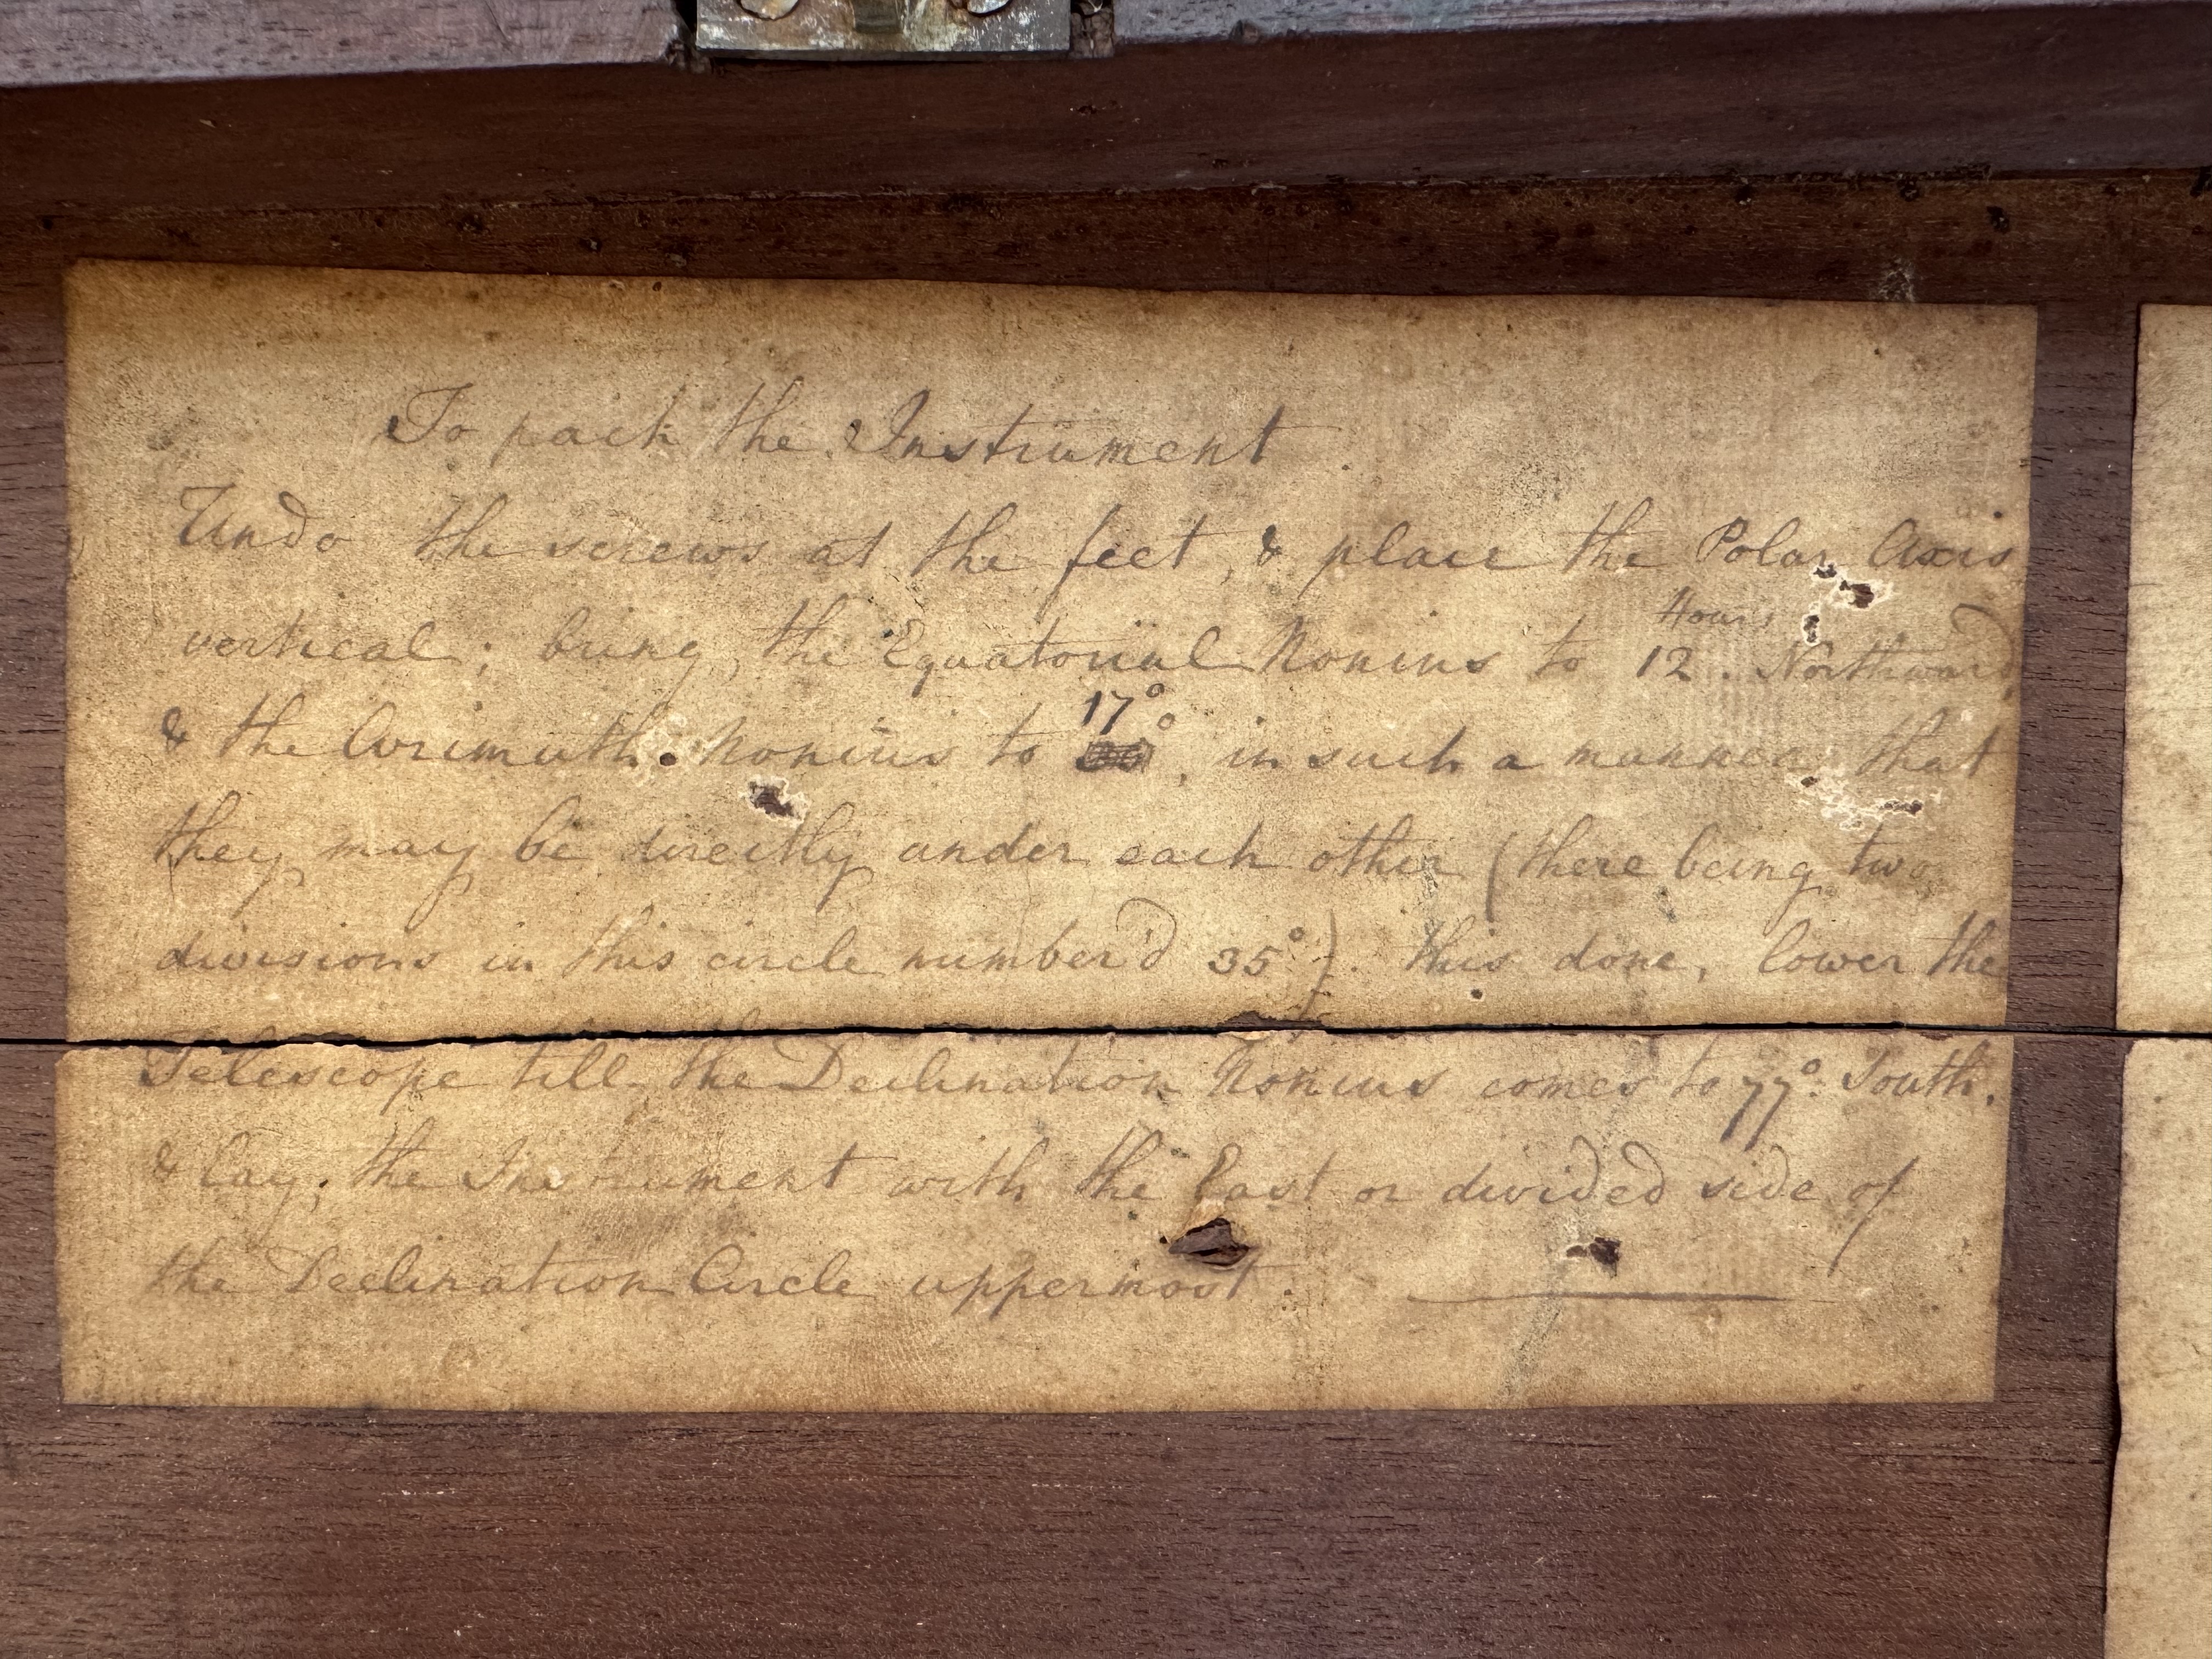 To pack the Instrument.
Undo the screws at the feet, & place the Polar Axis
Hours
vertical; bring, the Equatorial Nonius to 12. Northward,
17°
& the Azimuth. Nonius to °, in such a manner that
they may be directly under each other (there being two
divisions in this circle number'd 35°). this done, lower the
Telescope till the Declination Nonius comes to 77° South.
& lay, the Instrument with the East or divided side of
the Declination Circle uppermost.